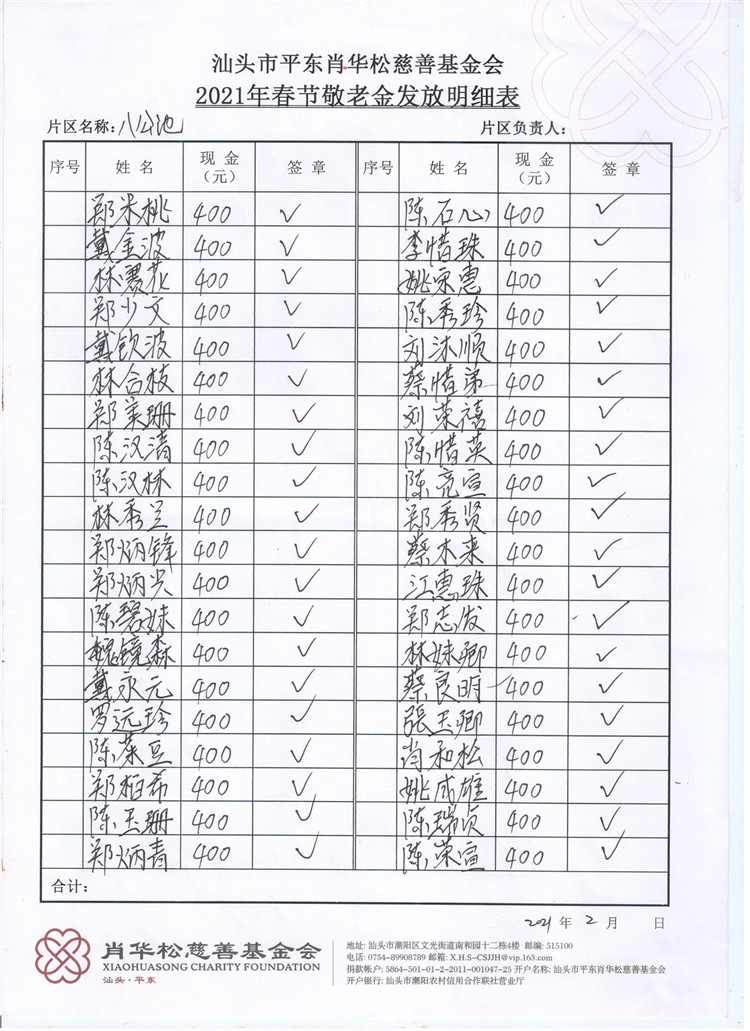 汕头市平东肖华松慈善基金会
2021年春节敬老金发放明细表
片区名称：八公池 片区负责人：
序号 姓名 现金（元） 签章 序号 姓名 现金（元） 签章
郑米桃 400 ✓ 陈石心 400 ✓
戴金波 400 ✓ 李惜珠 400 ✓
林赛花 400 ✓ 姚宋惠 400 ✓
郑少文 400 ✓ 陈秀珍 400 ✓
戴钦波 400 ✓ 刘沐顺 400 ✓
林合枝 400 ✓ 蔡惜弟 400 ✓
郑美珊 400 ✓ 刘荣禧 400 ✓
陈汉清 400 ✓ 陈惜英 400 ✓
陈汉林 400 ✓ 陈亮宣 400 ✓
林秀兰 400 ✓ 郑秀贤 400 ✓
郑炳锋 400 ✓ 蔡木来 400 ✓
郑炳兴 400 ✓ 江惠珠 400 ✓
陈碧妹 400 ✓ 郑志发 400 ✓
魏镜森 400 ✓ 林妹卿 400 ✓
戴永元 400 ✓ 蔡良明 400 ✓
罗远珍 400 ✓ 張玉卿 400 ✓
陈菜豆 400 ✓ 肖和松 400 ✓
郑栢希 400 ✓ 姚成雄 400 ✓
陈玉珊 400 ✓ 陈瑞贞 400 ✓
郑炳青 400 ✓ 陈荣宣 400 ✓
合计：
2021年2月 日
肖华松慈善基金会
XIAOHUASONG CHARITY FOUNDATION
汕头·平东
地址：汕头市潮阳区文光街道南和园十二栋4楼 邮编：515100
电话：0754-89908789 邮箱：X.H.S-CSJJH@vip.163.com
捐款帐户：5864-501-01-2-2011-001047-25 开户名称：汕头市平东肖华松慈善基金会
开户银行：汕头市潮阳农村信用合作联社营业厅